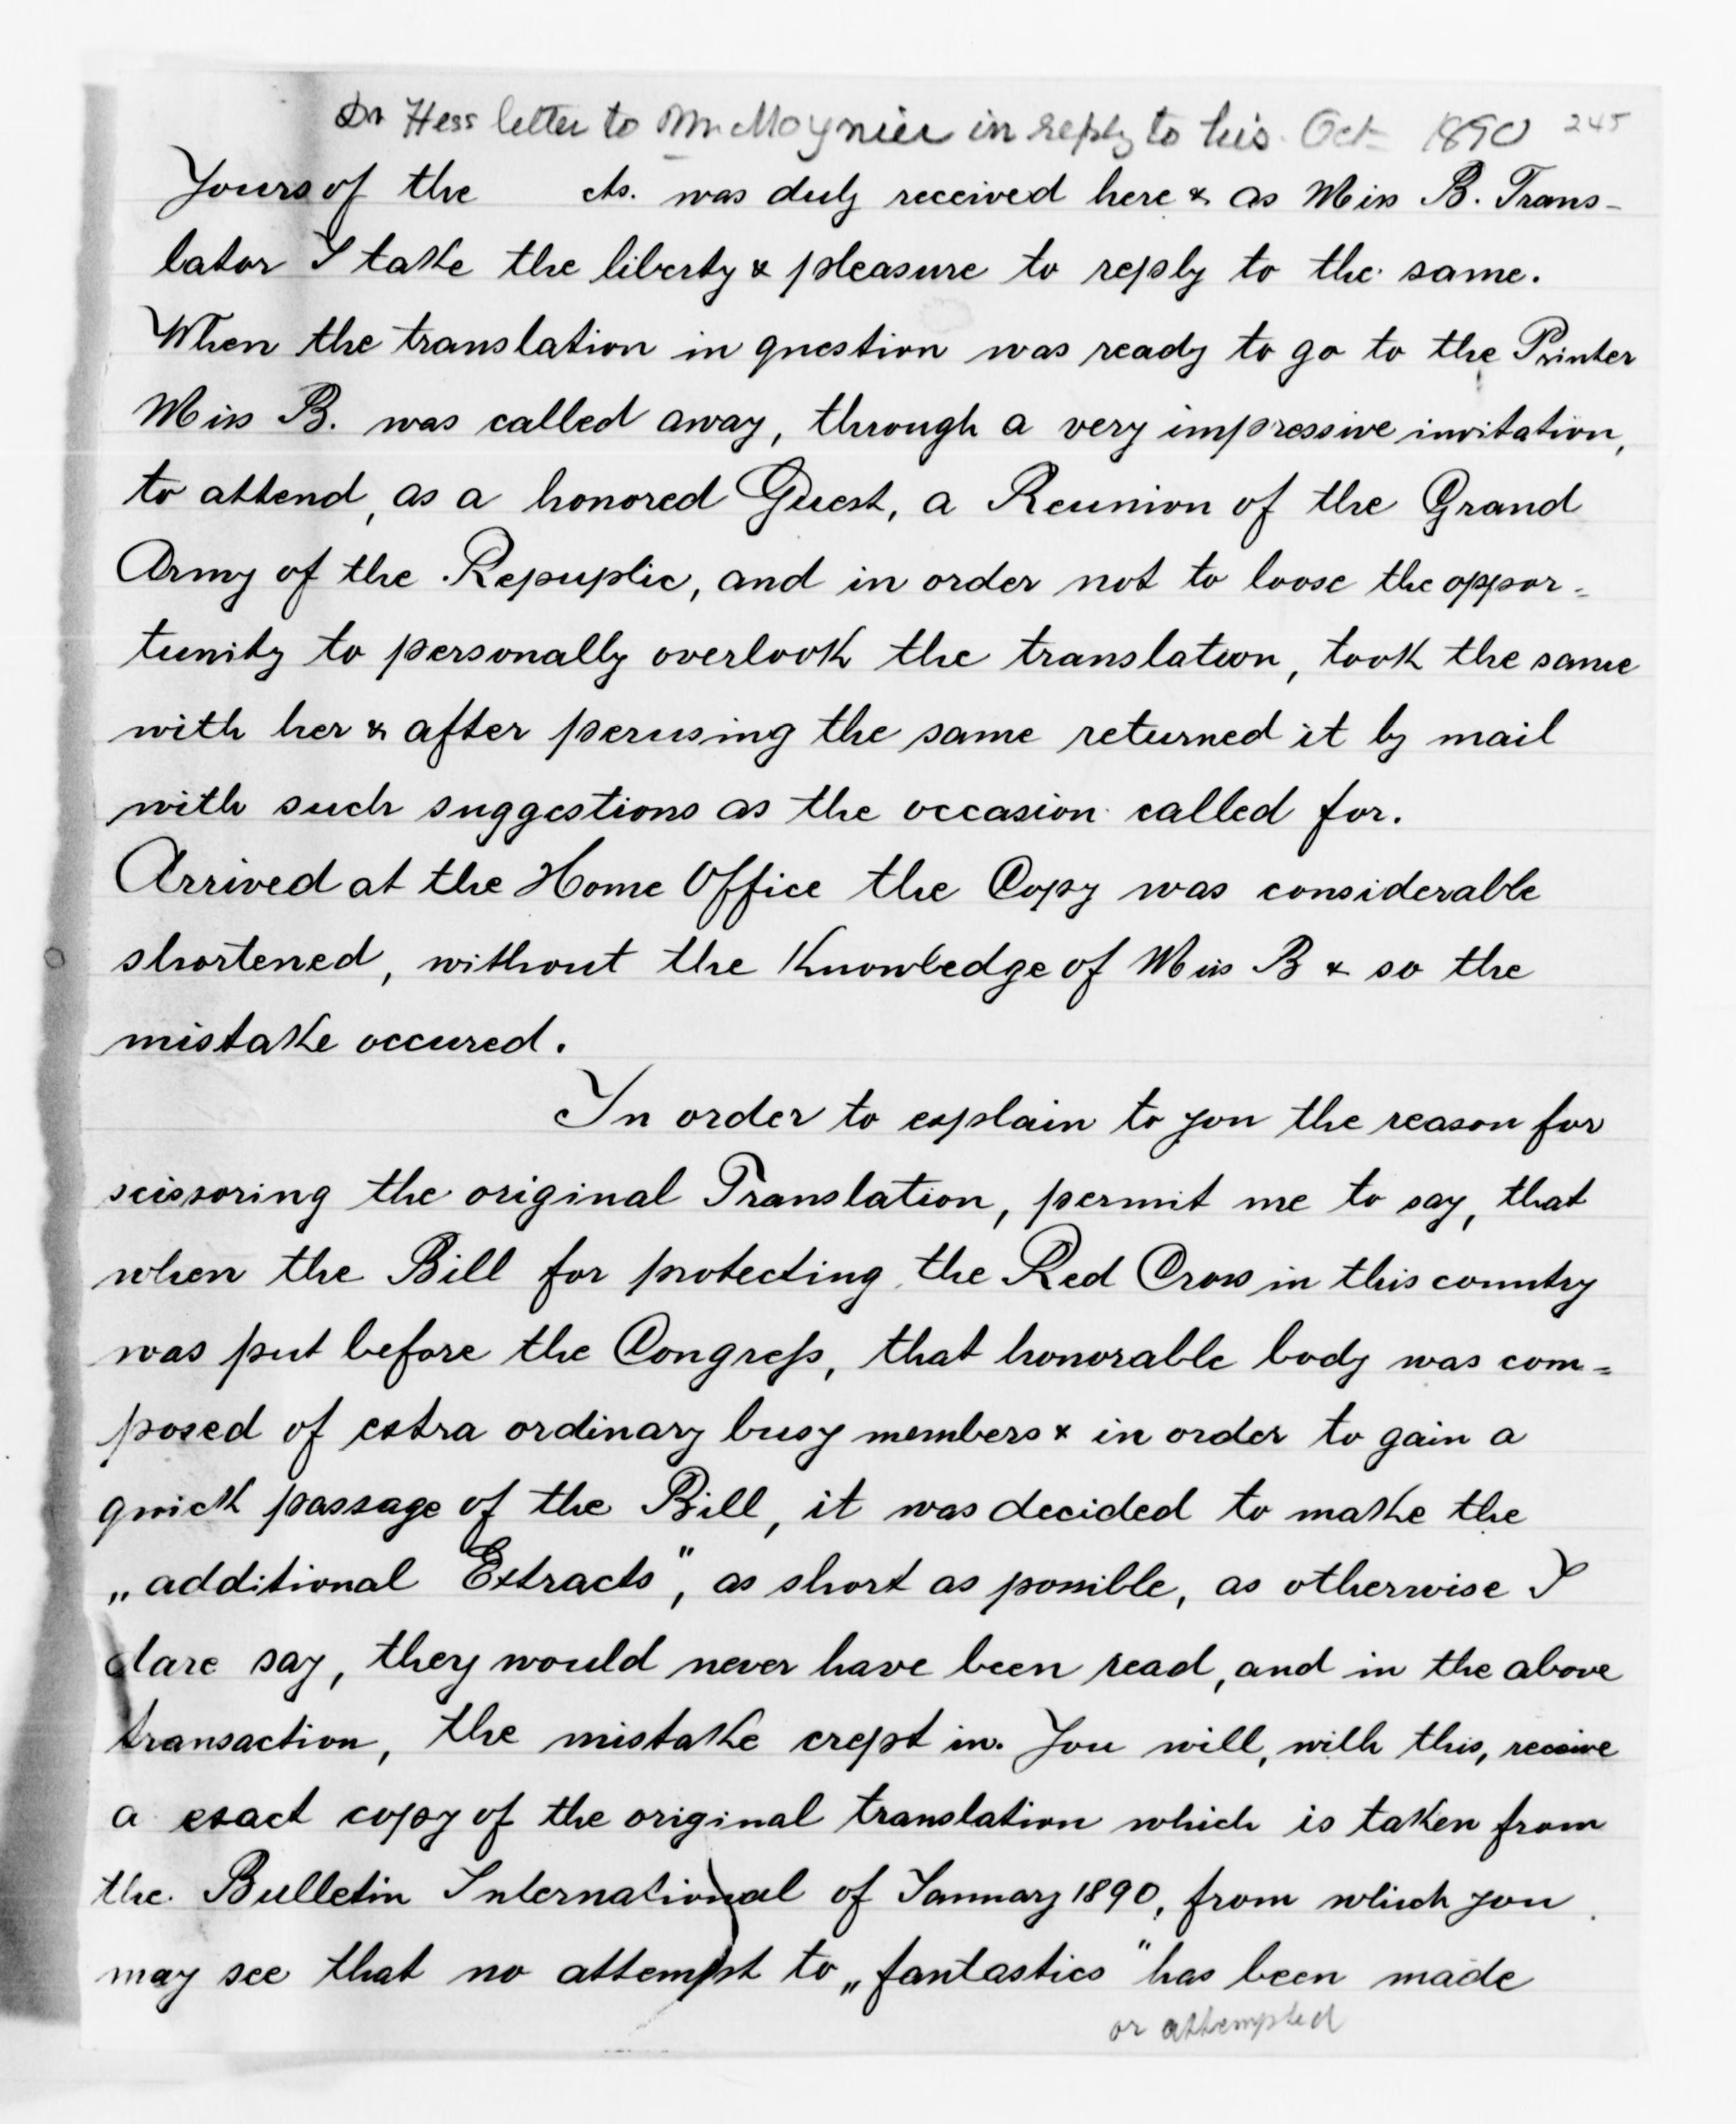 Dr Hess letter to Mr Moynier in reply to his Oct 1890 245
Yours of the cts. was duly received here & as Miss B. Trans-
lator I take the liberty & pleasure to reply to the same.
When the translation in question was ready to go to the Printer
Miss B. was called away, through a very impressive invitation,
to attend, as a honored Guest, a Reunion of the Grand
Army of the Repuplic, and in order not to loose the oppor=
tunity to personally overlook the translation, took the same
with her & after perusing the same returned it by mail
with such suggestions as the occasion called for.
Arrived at the Home Office the Copy was considerable
shortened, without the Knowledge of Miss B & so the
mistake occured.
In order to explain to you the reason for
scissoring the original Translation, permit me to say, that
when the Bill for protecting the Red Cross in this country
was put before the Congress, that honorable body was com=
posed of extra ordinary busy members & in order to gain a
quick passage of the Bill, it was decided to make the
„additional Extracts", as short as possible, as otherwise I
dare say, they would never have been read, and in the above
transaction, the mistake crept in. You will, with this, receive
a exact copy of the original translation which is taken from
the Bulletin International of January 1890, from which you
may see that no attempt to „fantastics" has been made
or attempted